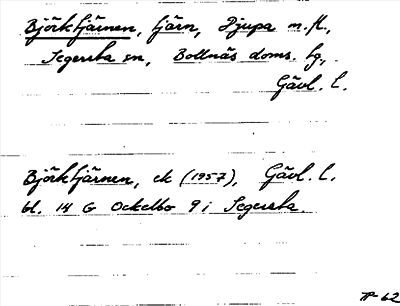 Björktjärnen, tjärn, Djupa m.fl.,
Segersta sn, Bollnäs doms. hg,.
Gävl. l.
Björktjärnen, ek (1957), Gävl. l.
bl. 14 G Ockelbo 9 i Segersta.
62